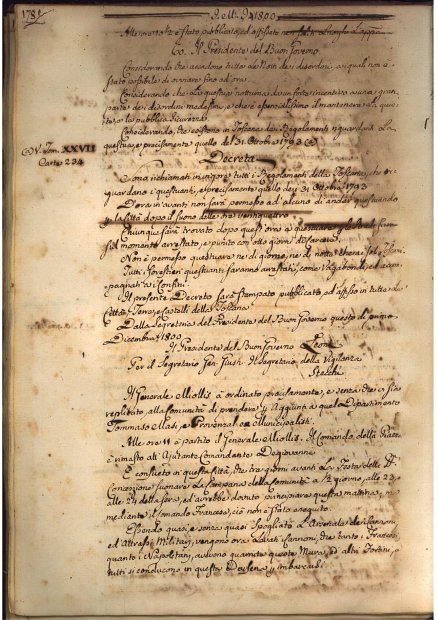 1781
1800
Alle ore 12 è stato pubblicato, ed affisso
Il Presidente del Buon Governo
Considerando che accadono tutte le Notti dei disordini, a i quali non è
stato possibile di ovviare fino ad ora.
Considerando che la questua notturna dà un forte incentivo a una gran
parte dei disordini medesimi, e che è essenzialissimo il mantenere la quiete,
e la pubblica sicurezza.
Considerando, che esistono in Toscana dei Regolamenti riguardanti la
questua, e precisamente quello del 31. Ottobre 1793
V. Tom. XXVII
Carte 234
Decreta
Sono richiamati in vigore tutti i Regolamenti della Toscana, che ri-
guardano i questuanti, e precisamente quello dei 31 Ottobre 1793
D'ora in avanti non sarà permesso ad alcuno di andar questuando
la Città dopo il suono delle ore ventiquattro.
Chiunque sarà trovato dopo quest'ora a questuare
momento arrestato, e punito con otto giorni di Carcere.
Non è permesso questuare nè di giorno, nè di notte
Tutti i Forestieri questuanti saranno arrestati, come Vagabondi, ed accom-
pagnati ai Confini.
Il presente Decreto sarà stampato pubblicato, ed affisso in tutte le
Città, Terre, e Castelli della Toscana
Dalla Segreteria del Presidente del Buon Governo questo dì primo
Dicembre 1800
Il Presidente del Buon Governo
Per il Segretario Gen. Il Segretario della Vigilanza
Stecchi
Il Generale Miollis à ordinato precisamente, e senza che ci sia
replicato, alla Comunità di prendere
Tommaso Masi, e Provenzal
Alle ore 11 è partito il Generale Miollis. Il Comando della Piazza
è rimasto all'Ajutante Comandante
È consueto in questa Città, che tre giorni avanti la Festa della
Concezione suonare la Campana della Comunità a ½ giorno, alle 22,
alle 24 della sera, ed avrebbe dovuto principiare questa mattina, ma
mediante il Comando Francese, ciò non è stato eseguito.
Essendo quasi, e senza quasi spogliato l'Arsenale dei Cannoni,
ed Attrassi Militari, vengono ora levati i Cannoni, che tanto i Francesi,
quanto i Napoletani, avevano queste Mura, ed altri Fortini, e
tutti si conducono in questa Darsena